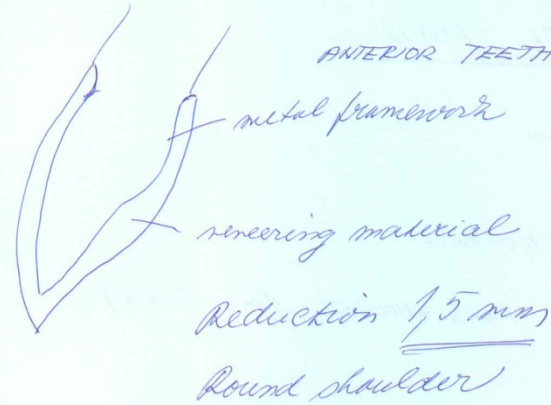 ANTERIOR TEETH
metal framework
veneering material
Reduction 1,5 mm
Round shoulder